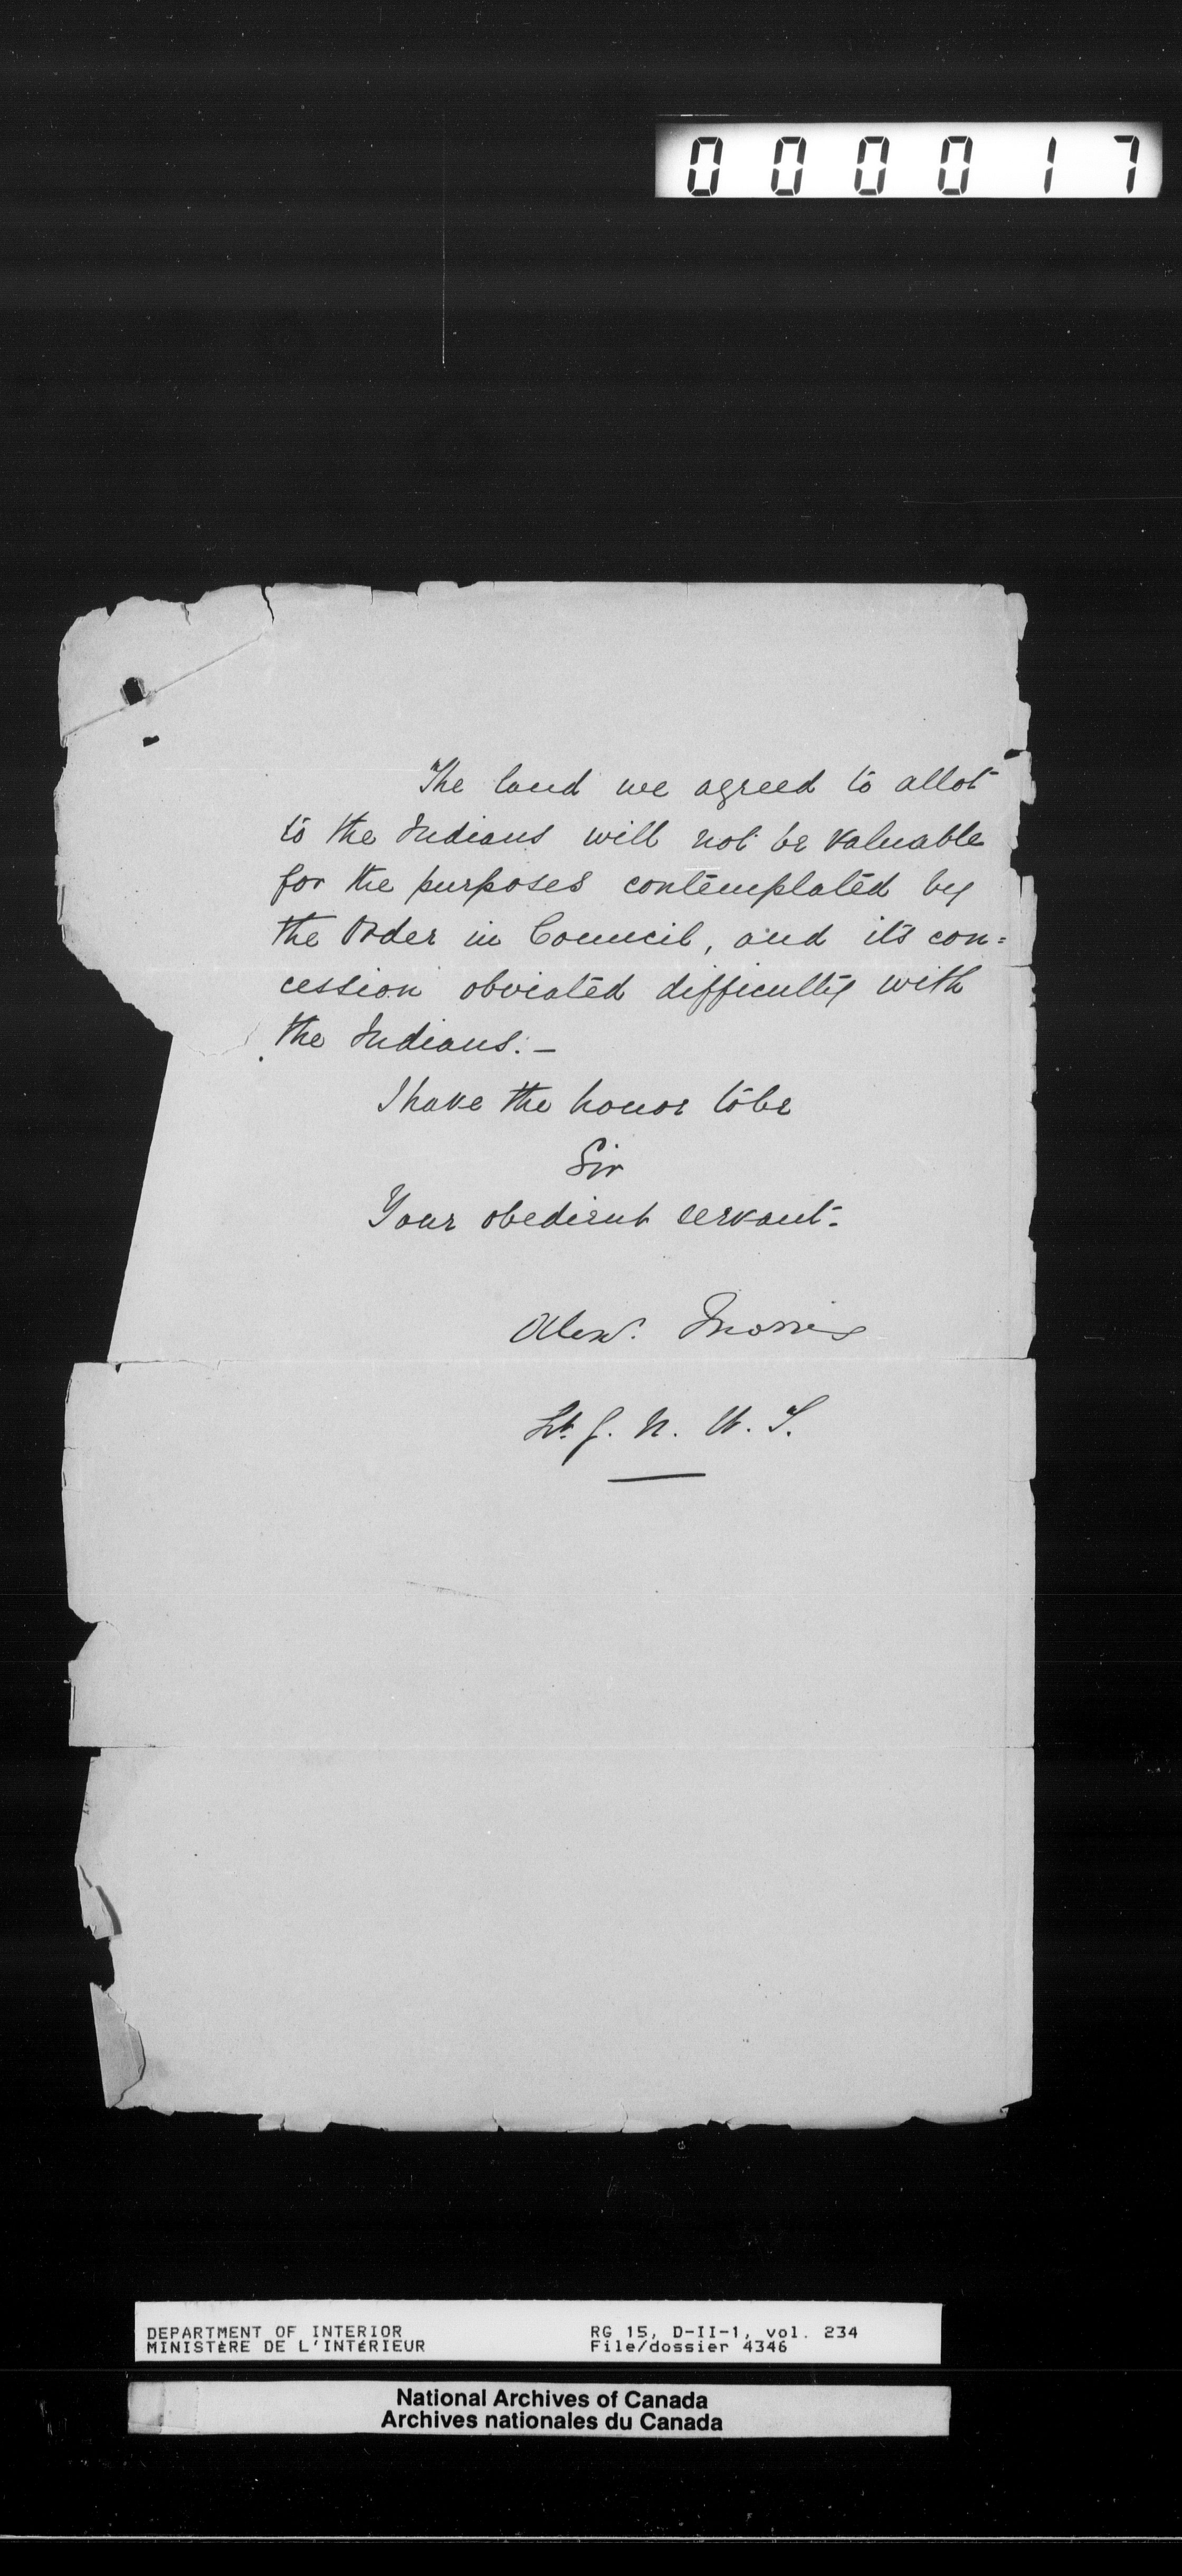 000017
The land we agreed to allot
to the Indians will not be valuable
for the purposes contemplated by
the Order in Council, and its con=
cession obviated difficulty with
the Indians. —
I have the honor to be
Sir
Your obedient servant.
Alex. Morris
Lt. G. N. W. T.
DEPARTMENT OF INTERIOR RG 15, D-II-1, vol. 234
MINISTÈRE DE L'INTÉRIEUR File/dossier 4346
National Archives of Canada
Archives nationales du Canada